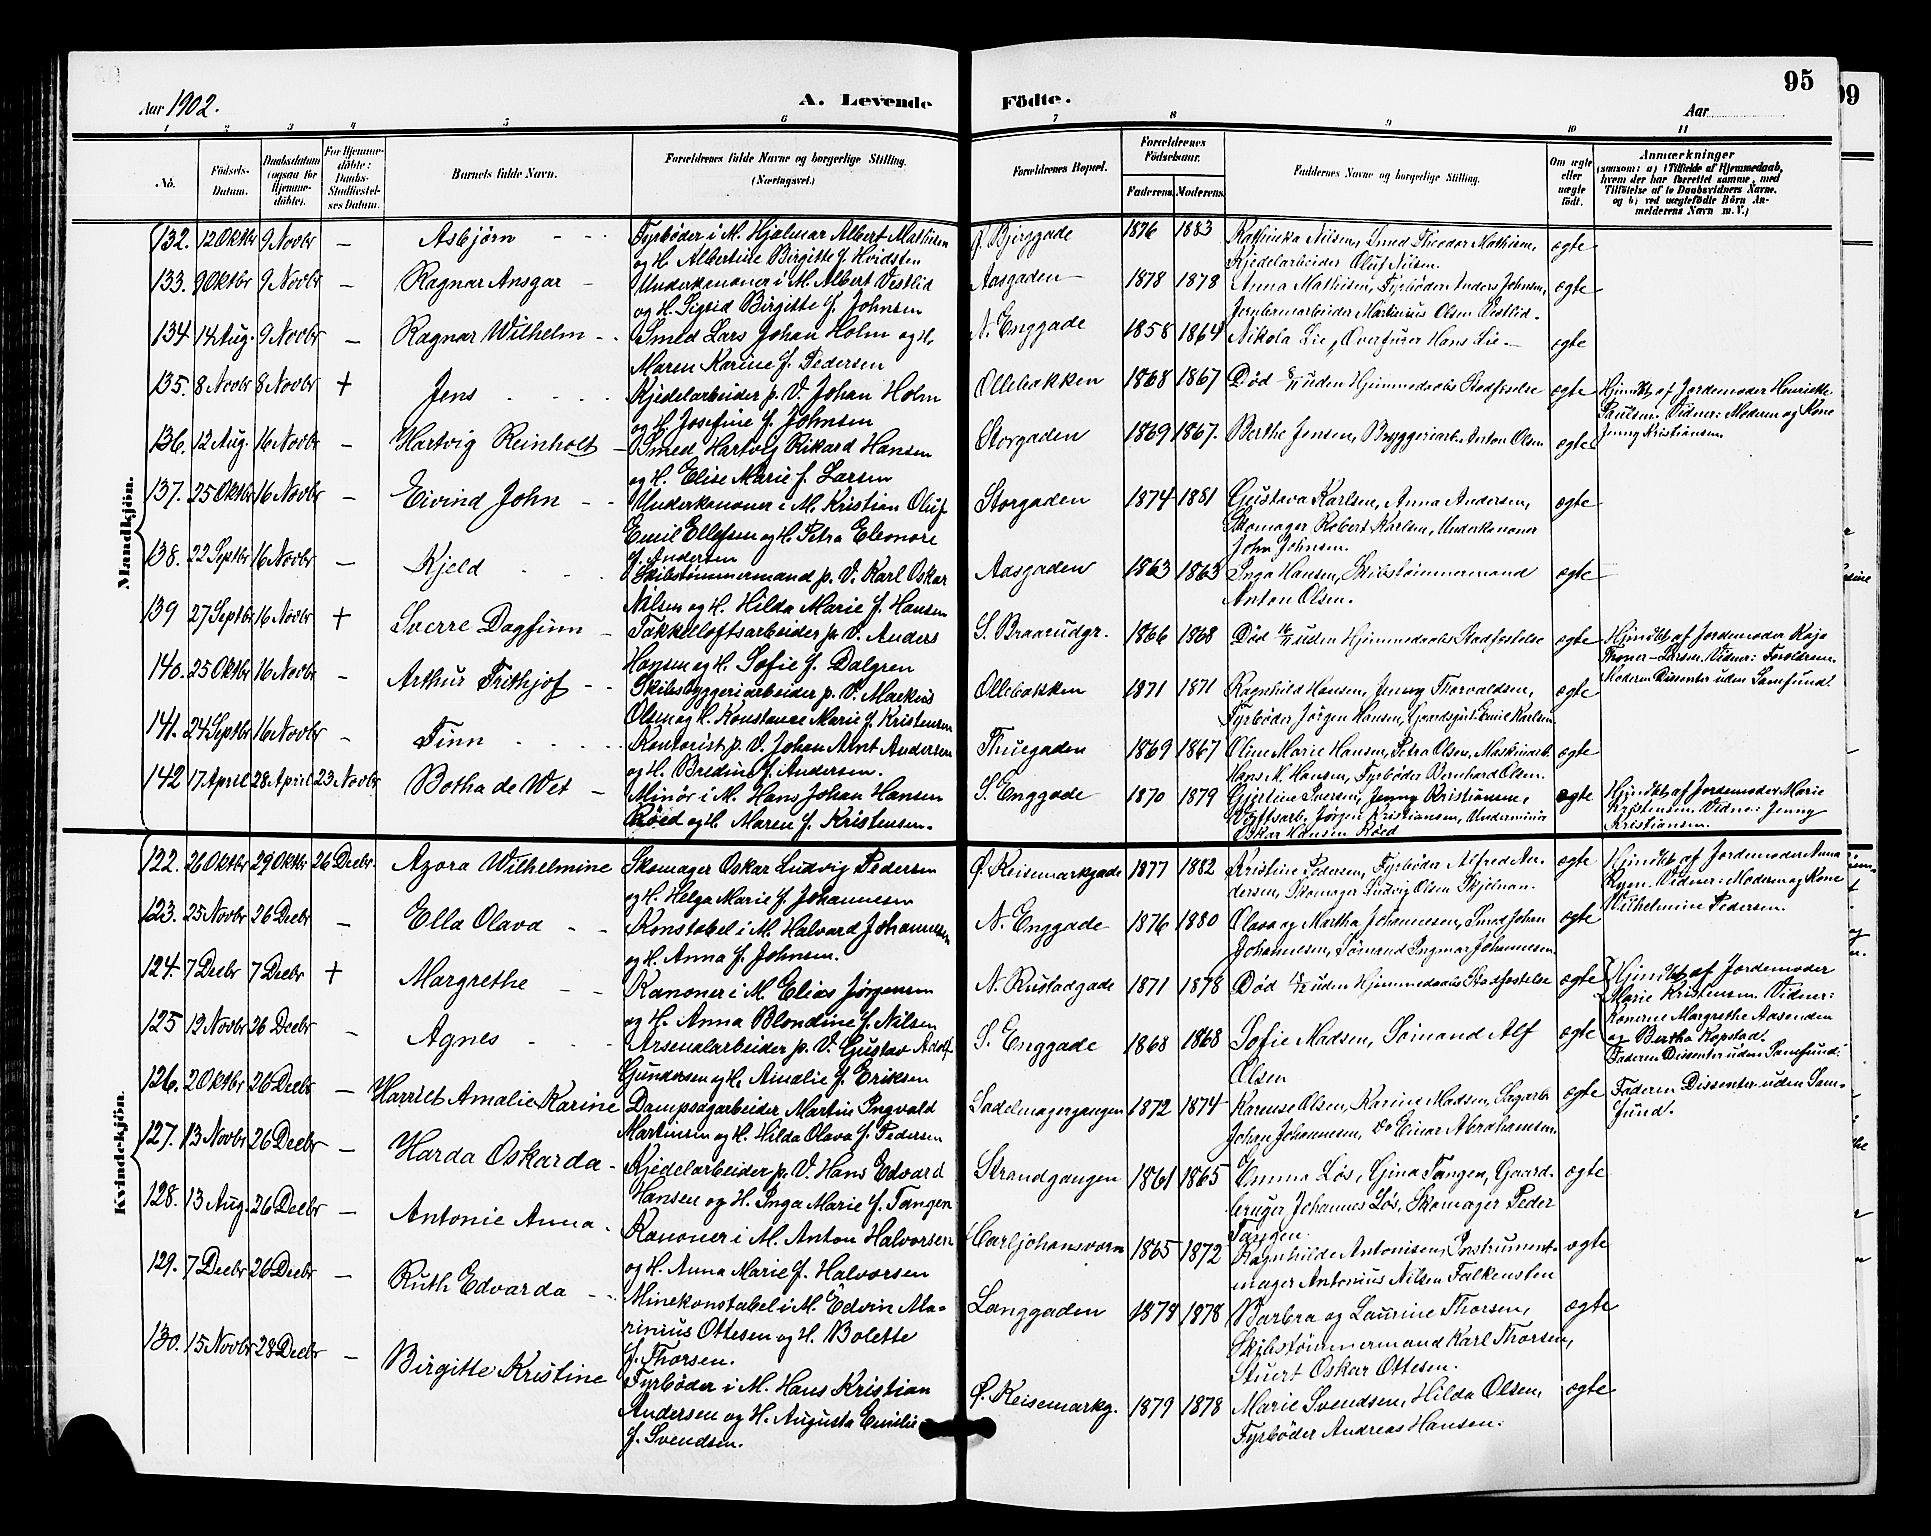 95
99
Aar 1902.
A. Levende
Födte.
Aar
1 2 3 4 5 6 7 8 9 10 11
No.
Födsels-Datum.
Daabsdatum (ogsaa for Hjemme-döbte).
For Hjemme-döbte: Daabs-Stadfæstel-ses Datum.
Barnets fulde Navn.
Forældrenes fulde Navne og borgerlige Stilling. (Næringsvei.)
Forældrenes Bopæl.
Forældrenes Födselsaar.
Faderens. Moderens.
Faddernes Navne og borgerlige Stilling.
Om ægte eller uægte födt.
Anmærkninger
(saasom: a) i Tilfælde af Hjemmedaab, hvem der har forrettet samme, med Tilföielse af to Daabsvidners Navne. og b) ved uægtefödte Börn An-melderens Navn m. V.)
Mandkjön.
132. 12 Oktbr 9 Novbr — Asbjörn - - - Fyrböder i M. Hjalmar Albert Mathisen Ø. Bjerggade 1876 1883 Kathinka Nilsen, Smed Theodor Mathisen, ægte
og H. Albertine Birgitte f. Hvidsten Kjedelarbeider Oluf Nilsen.
133. 9 Oktbr 9 Novbr — Ragnar Ansgar - Underkanoner i M. Albert Vestlid Aasgaden 1878 1878 Anna Mathisen, Fyrböder Anders Johnsen, ægte
og H. Sigrid Birgitte f. Johnsen Jernbanearbeider Martinius Olsen Vestlid.
134 14 Aug. 9 Novbr — Ragnar Wilhelm - - Smed Lars Johan Holm og H. N. Enggade 1858 1864 Nikola Lie, Overfurer Hans Lie — ægte
Maren Karine f. Pedersen
135. 8 Novbr 8 Novbr + Jens - - - - Kjedelarbeider p. V. Johan Holm Ollebakken 1868 1867 Död 8/11 uden Hjemmedaabs Stadfæstelse ægte Hjmdbt af Jordemoder Henrikke
og H. Josefine f. Johnsen Paulsen. Vidner: Moderen og Kone
136. 12 Aug. 16 Novbr - Hartvig Reinholt - Smed Hartvig Rikard Hansen Storgaden 1869 1867. Berthe Jensen, Bryggeriarb. Anton Olsen ægte Jenny Kristiansen.
og H. Elise Marie f. Larsen
137. 25 Oktbr 16 Novbr — Eivind John - - Underkanoner i M. Kristian Oluf Storgaden 1874 1881 Gustava Karlsen, Anna Andersen, ægte
Emil Ellefsen og H. Petra Eleonore Skomager Robert Karlsen, Underkanoner
f. Andersen John Johnsen.
138. 22 Septbr 16 Novbr — Kjeld - - - Skibstömmermand p. V. Karl Oskar Aasgaden 1863 1863 Inga Hansen, Skibstömmermand ægte
Nilsen og H. Hilda Marie f. Hansen Anton Olsen.
139 27 Septbr 16 Novbr + Sverre Dagfinn - Takkelloftsarbeider p. V. Anders S. Braarudgr. 1866 1868 Död uden Hjemmedaabs Stadfæstelse ægte Hjmdbt af Jordemoder Kaja
Hansen og H. Sofie f. Dalgren Larsen. Vidner: Forældrene.
140. 25 Oktbr 16 Novbr - Arthur Frithjof - - Skibsbyggeriarbeider p. V. Markus Ollebakken 1871 1871 Ragnhild Hansen, Jenny Thorvaldsen, ægte Moderen Dissenter uden Samfund.
Olsen og H. Konstance Marie f. Kristensen Fyrböder Jörgen Hansen, Gaardsgut Emil Karlsen
141. 24 Septbr 16 Novbr - Finn - - - - Kontorist p. V. Johan Arnt Andersen Thuegaden 1869 1867 Oline Marie Hansen, Petra Olsen, Maskinarb. ægte
og H. Bredine f. Andersen. Hans M. Hansen, Fyrböder Bernhard Olsen.
142 17 April 28 April 23 Novbr Botha de Wet - Minör i M. Hans Johan Hansen S. Enggade 1870 1879 Jenny Kristiansen, ægte Hjmdbt af Jordemoder Marie
Röed og H. Maren f. Kristensen. Værftsarb. Jörgen Kristiansen, Underminör Kristensen. Vidner: Jenny
Oskar Hansen Röed Kristiansen.
Kvindekjön.
122. 26 Oktbr 29 Oktbr 26 Decbr. Azora Wilhelmine Skomager Oskar Ludvig Pedersen Ø. Keisemarkgade 1877 1882 Kristine Pedersen, Fyrböder Alfred An- ægte Hjmdbt af Jordemoder Anna
og H. Helga Marie f. Johannesen dersen, Skomager Ludvig Olsen Vidner: Moderen og Kone
123. 25 Novbr 26 Decbr - Ella Olava - - Konstabel i M. Halvard Johannesen N. Enggade 1876 1880 Olava og Martha Johannesen, Smed Johan ægte Wilhelmine Pedersen.
og H. Anna f. Johnsen. Johannesen, Sömand Ingmar Johannesen
124. 7 Decbr 7 Decbr + Margrethe - - Kanoner i M. Elias Jørgensen N. Rustadgade 1871 1878 Död uden Hjemmedaabs Stadfæstelse ægte Hjmdbt af Jordemoder
og H. Anna Blondine f. Nilsen Marie Kristensen. Vidner:
125 12 Novbr 26 Decbr - Agnes - - - Arsenalarbeider p. V. Gustav Adolf S. Enggade 1868 1868 Sofie Madsen, Sömand Alf ægte Konerne Margrethe Aasenden
Gundersen og H. Amalie f. Eriksen Olsen og Bertha Kopstad.
Faderen Dissenter uden Samfund.
126. 2 Oktbr 26 Decbr — Harriet Amalie Karine Dampsagarbeider Martin Ingvald Sadelmagergangen 1872 1874 Karense Olsen, Karine Madsen, Sagarb. ægte Faderen Dissenter uden Sam-
Martinsen og H. Hilda Olava f. Pedersen Johan Johannesen, Do Einar Abrahamsen fund.
127. 13 Novbr 26 Decbr — Harda Oskarda - Kjedelarbeider p. V. Hans Edvard Strandgangen 1861 1865 Emma Løs, Gina Tangen, Gaard- ægte
Hansen og H. Inga Marie f. Tangen bruger Johannes Løs, Skomager Peder
Tangen.
128. 13 Aug. 26 Decbr — Antonie Anna - Kanoner i M. Anton Halvorsen Carljohansværn 1865 1872 Ragnhilde Antonisen, Instrument- ægte
og H. Anna Marie f. Halvorsen mager Antonius Nilsen Falkensten
129. 7 Decbr 26 Decbr — Ruth Edvarda - - Minekonstabel i M. Edvin Ma- Langgaden 1878 1878 Barbra og Laurine Thorsen, ægte
rinius Ottesen og H. Bolette Skibstömmermand Karl Thorsen,
f. Thorsen. Stuert Oskar Ottesen.
130. 15 Novbr 28 Decbr — Birgitte Kristine Fyrböder i M. Hans Kristian Ø. Keisemarkg. 1879 1878 Marie Svendsen, Hilda Olsen, ægte
Andersen og H. Augusta Emilie Fyrböder Andreas Hansen.
f. Svendsen.